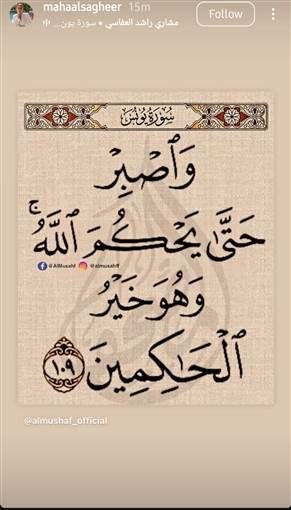 mahaalsagheer 15m
مشاري راشد العفاسي • سورة يون...
Follow
سُورَةُ يُونُس
وَٱصۡبِرۡ
حَتَّىٰ يَحۡكُمَ ٱللَّهُۚ
@AlMusahf @almushaff
وَهُوَ خَيۡرُ
ٱلۡحَٰكِمِينَ ١٠٩
@almushaf_official